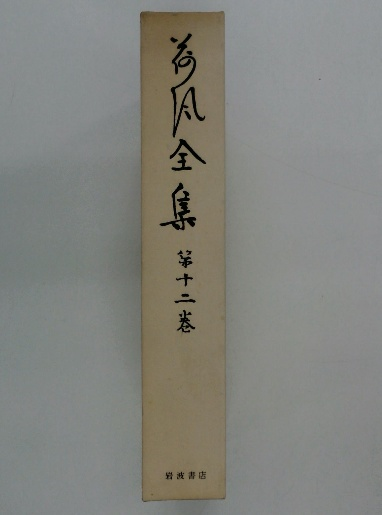 荷风全集
第十二巻
岩波書店